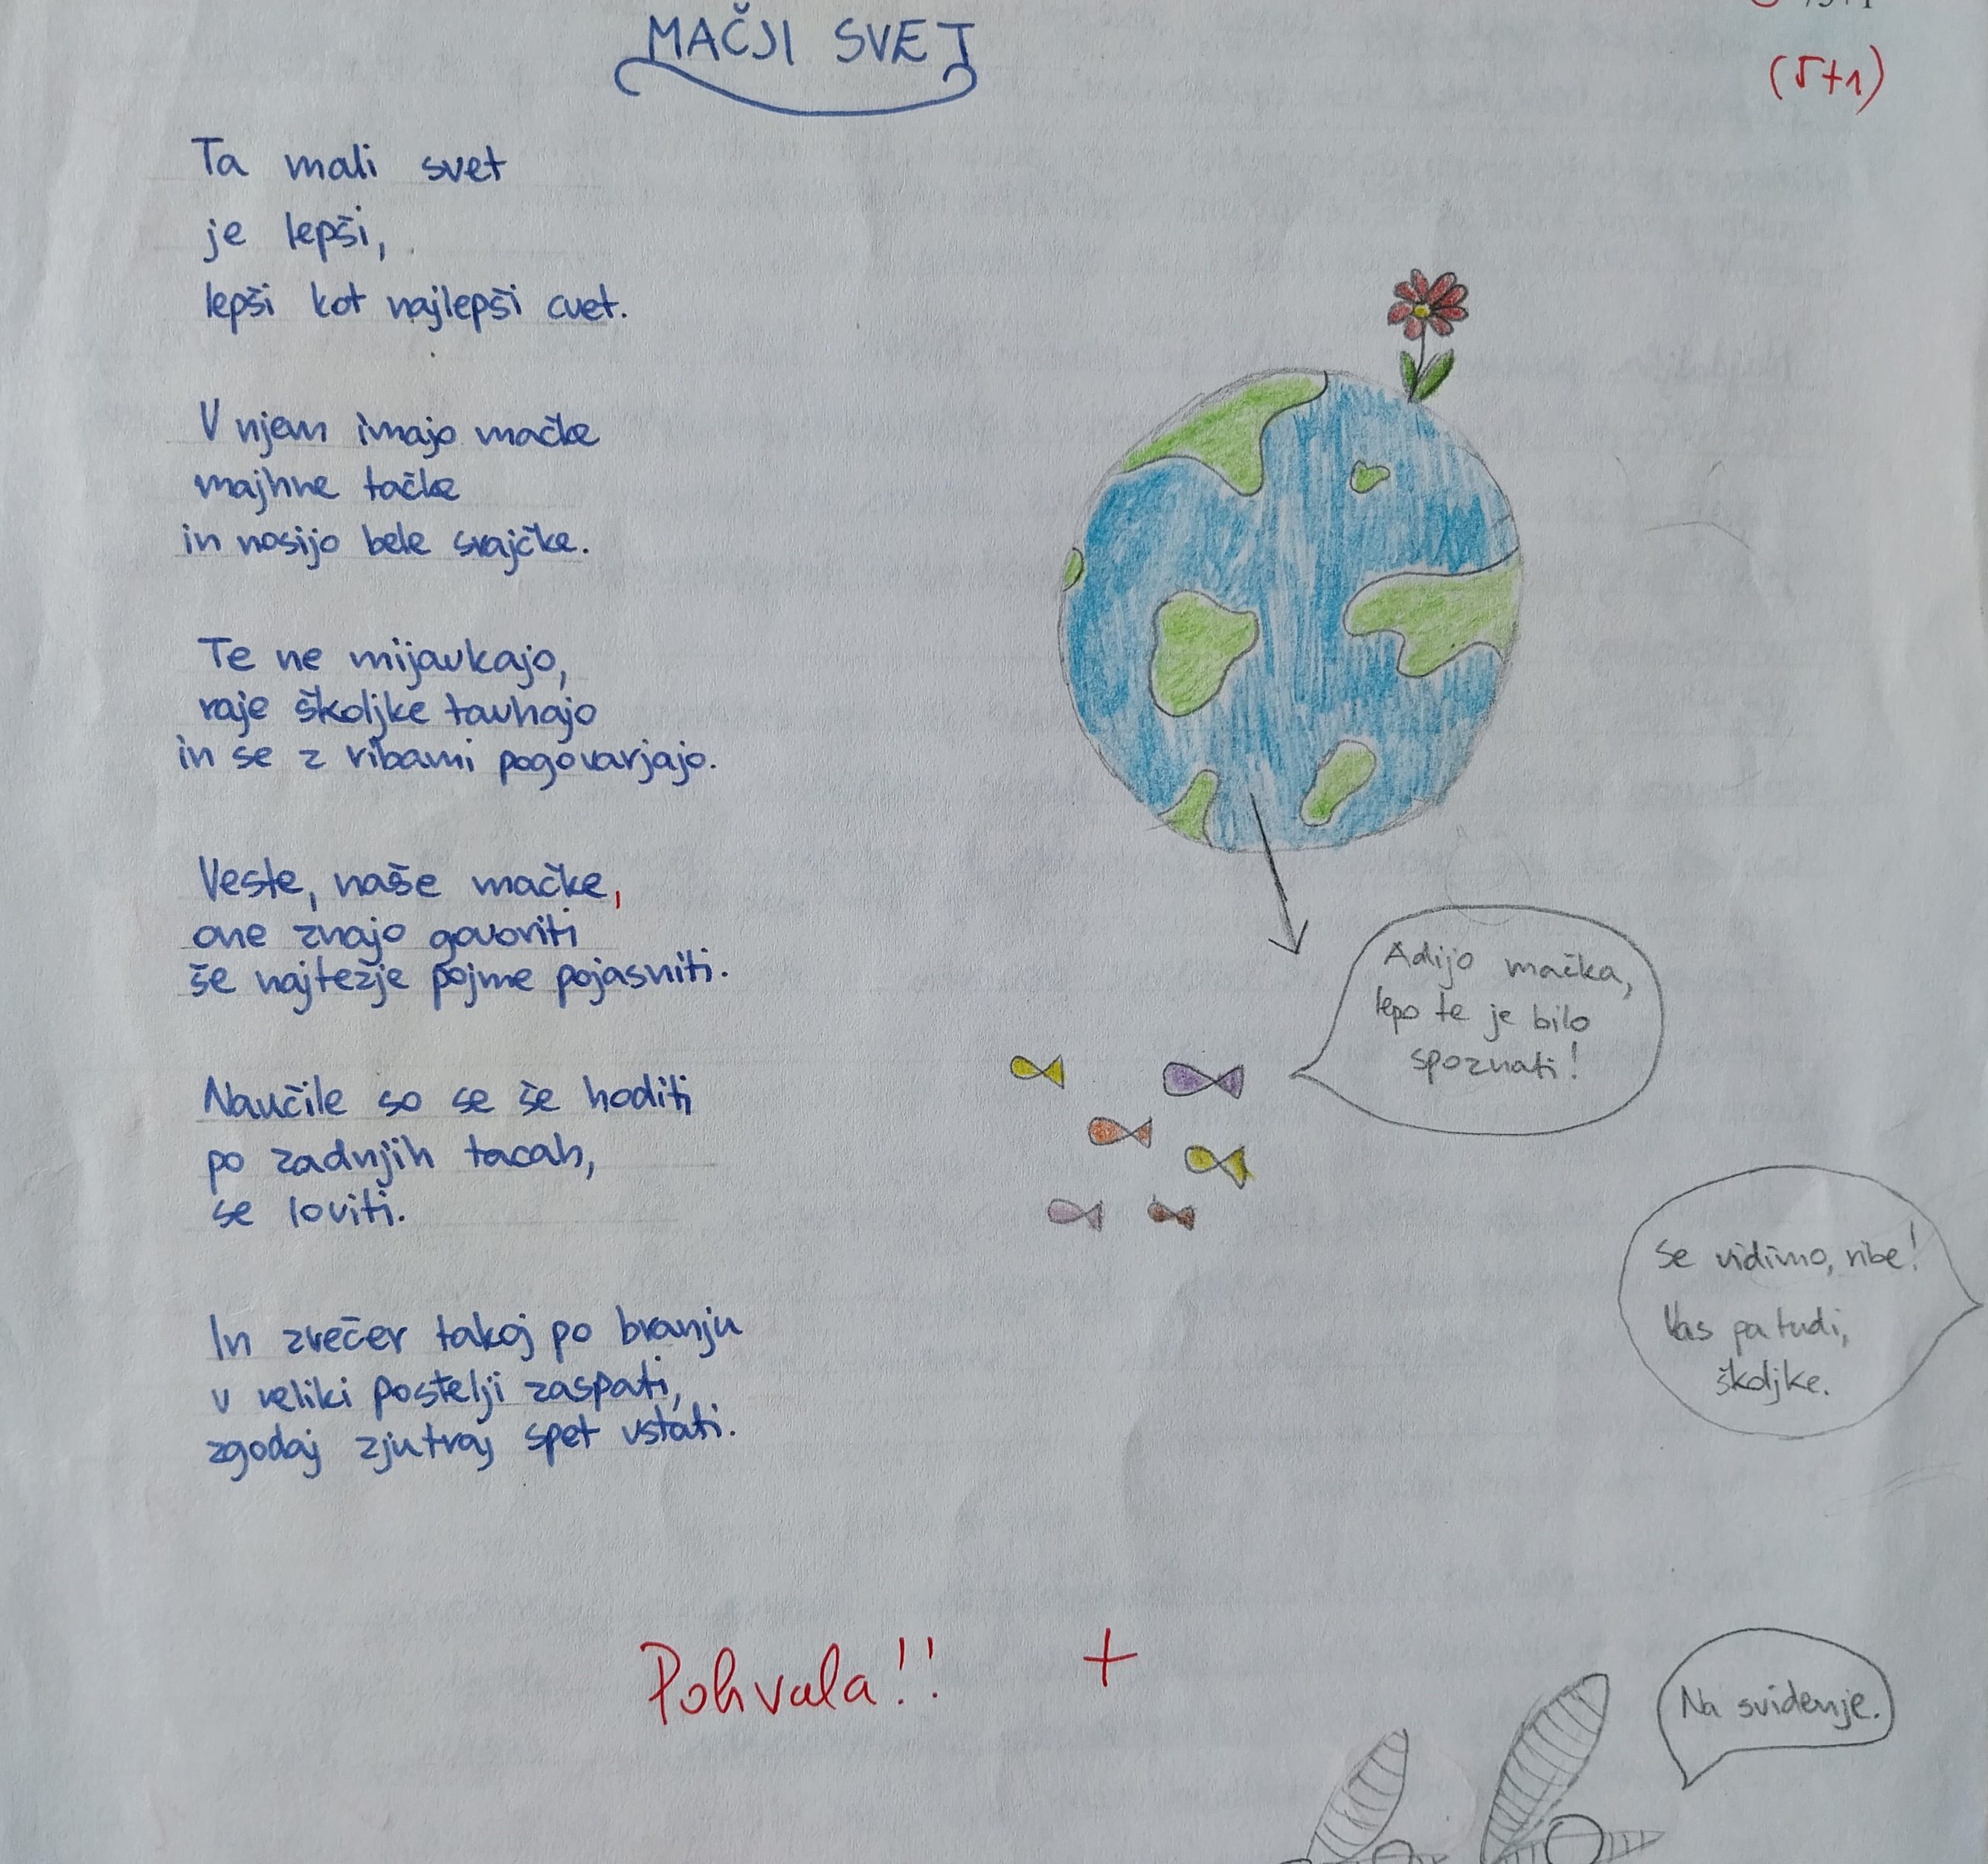 MAČJI SVET
(5+1)
Ta mali svet
je lepši,
lepši kot najlepši cvet.
V njem imajo mačke
majhne tačke
in nosijo bele srajčke.
Te ne mijavkajo,
raje školjke tauhajo
in se z ribami pogovarjajo.
Veste, naše mačke,
one znajo govoriti
še najtežje pojme pojasniti.
Naučile so se še hoditi
po zadnjih tacah,
se loviti.
In zvečer takoj po branju
v veliki postelji zaspati,
zgodaj zjutraj spet vstati.
Adijo mačka,
lepo te je bilo
spoznati!
Se vidimo, ribe!
Vas pa tudi,
školjke.
Na svidenje.
Pohvala!! +